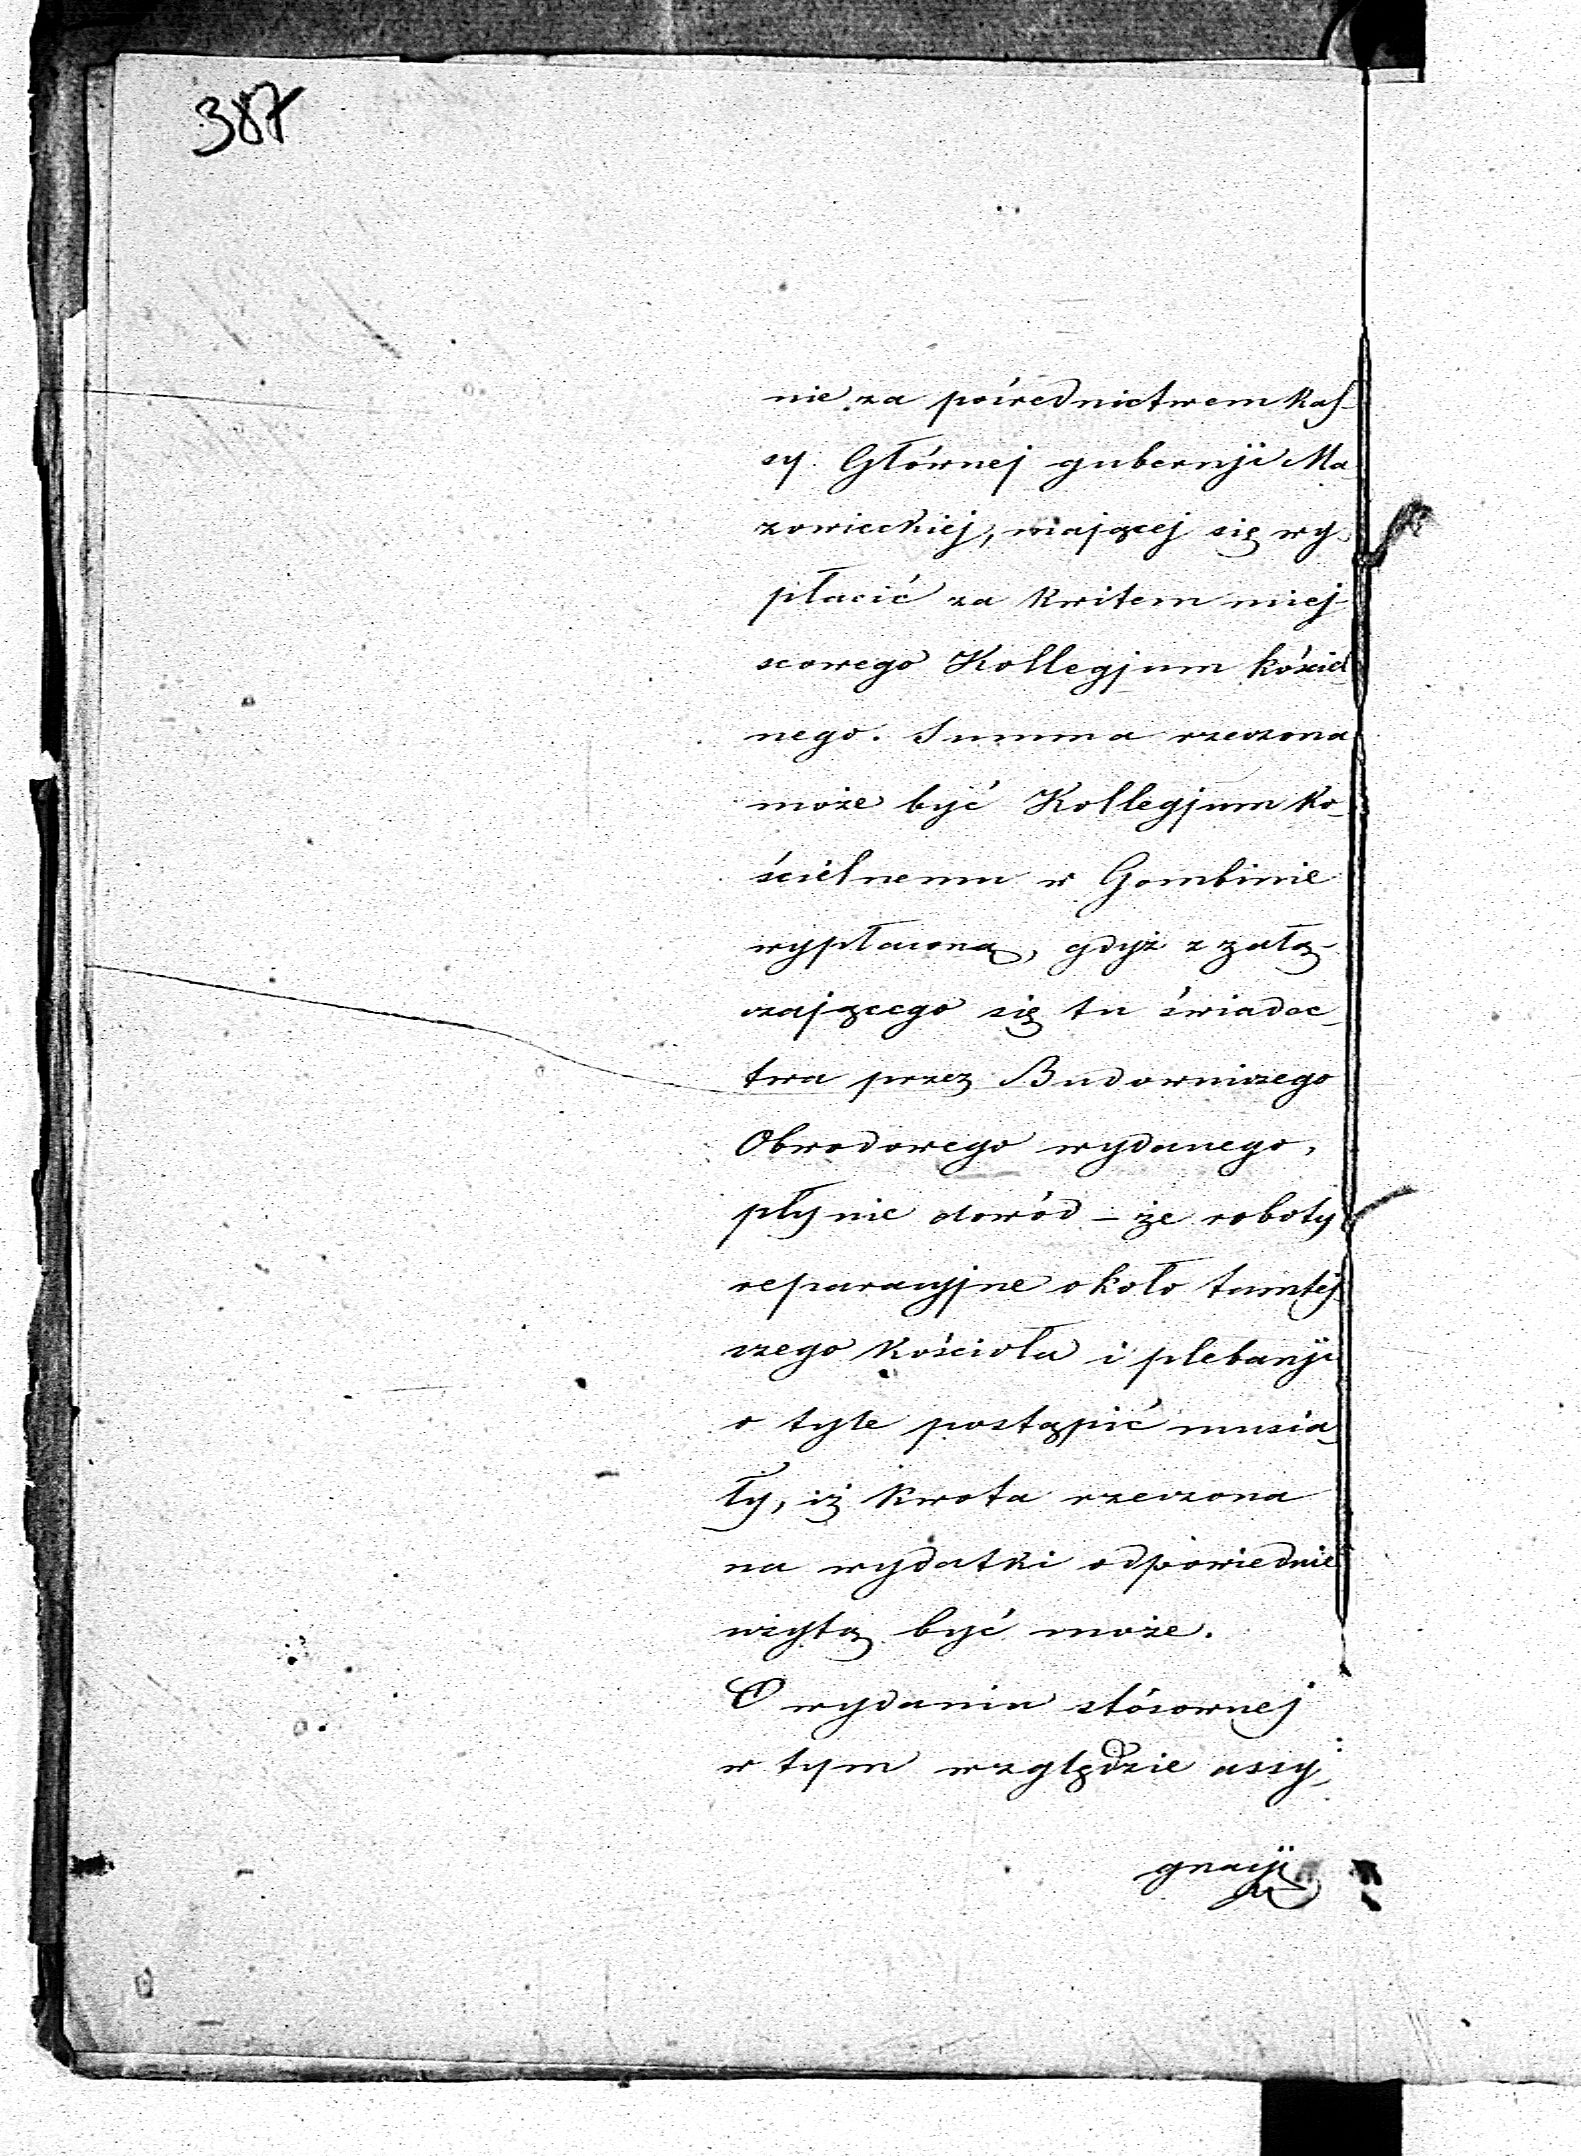 387
nie za pośrednictwem Kas-
sy Głównej gubernji Ma
zowieckiej, mającej się wy-
płacić za kwitem miej-
scowego Kollegjum kóściel
nego. Summa rzeczona
może być Kollegjum Ko-
ścielnemu w Gombinie
wypłaconą, gdyż z załą-
czającego się tu świadec-
twa przez Budowniczego
Obwodowego wydanego,
płynie dowód – że roboty
reparacyjne około tamtéj
szego Kościoła i plebanji
o tyle postąpić musia-
ły, iż kwota rzeczona
na wydatki odpowiednie
użytą być może.
O wydania stósownej
w tym względzie assy-
gnacji